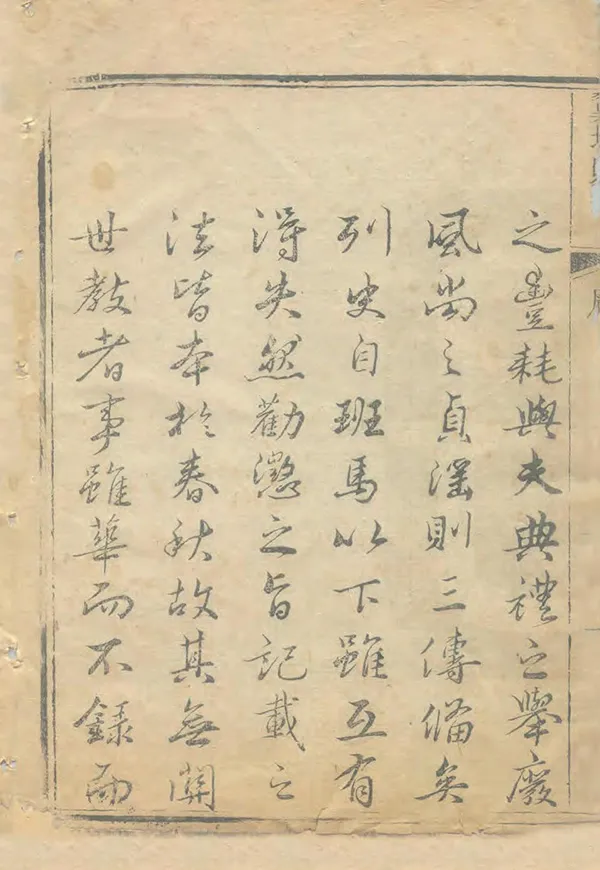 之豐耗與夫典禮之舉廢
風尚之貞淫則三傳備矣
列史自班馬以下雖互有
得失然勸懲之旨記載之
法皆本於春秋故其無關
世教者事雖華而不錄而